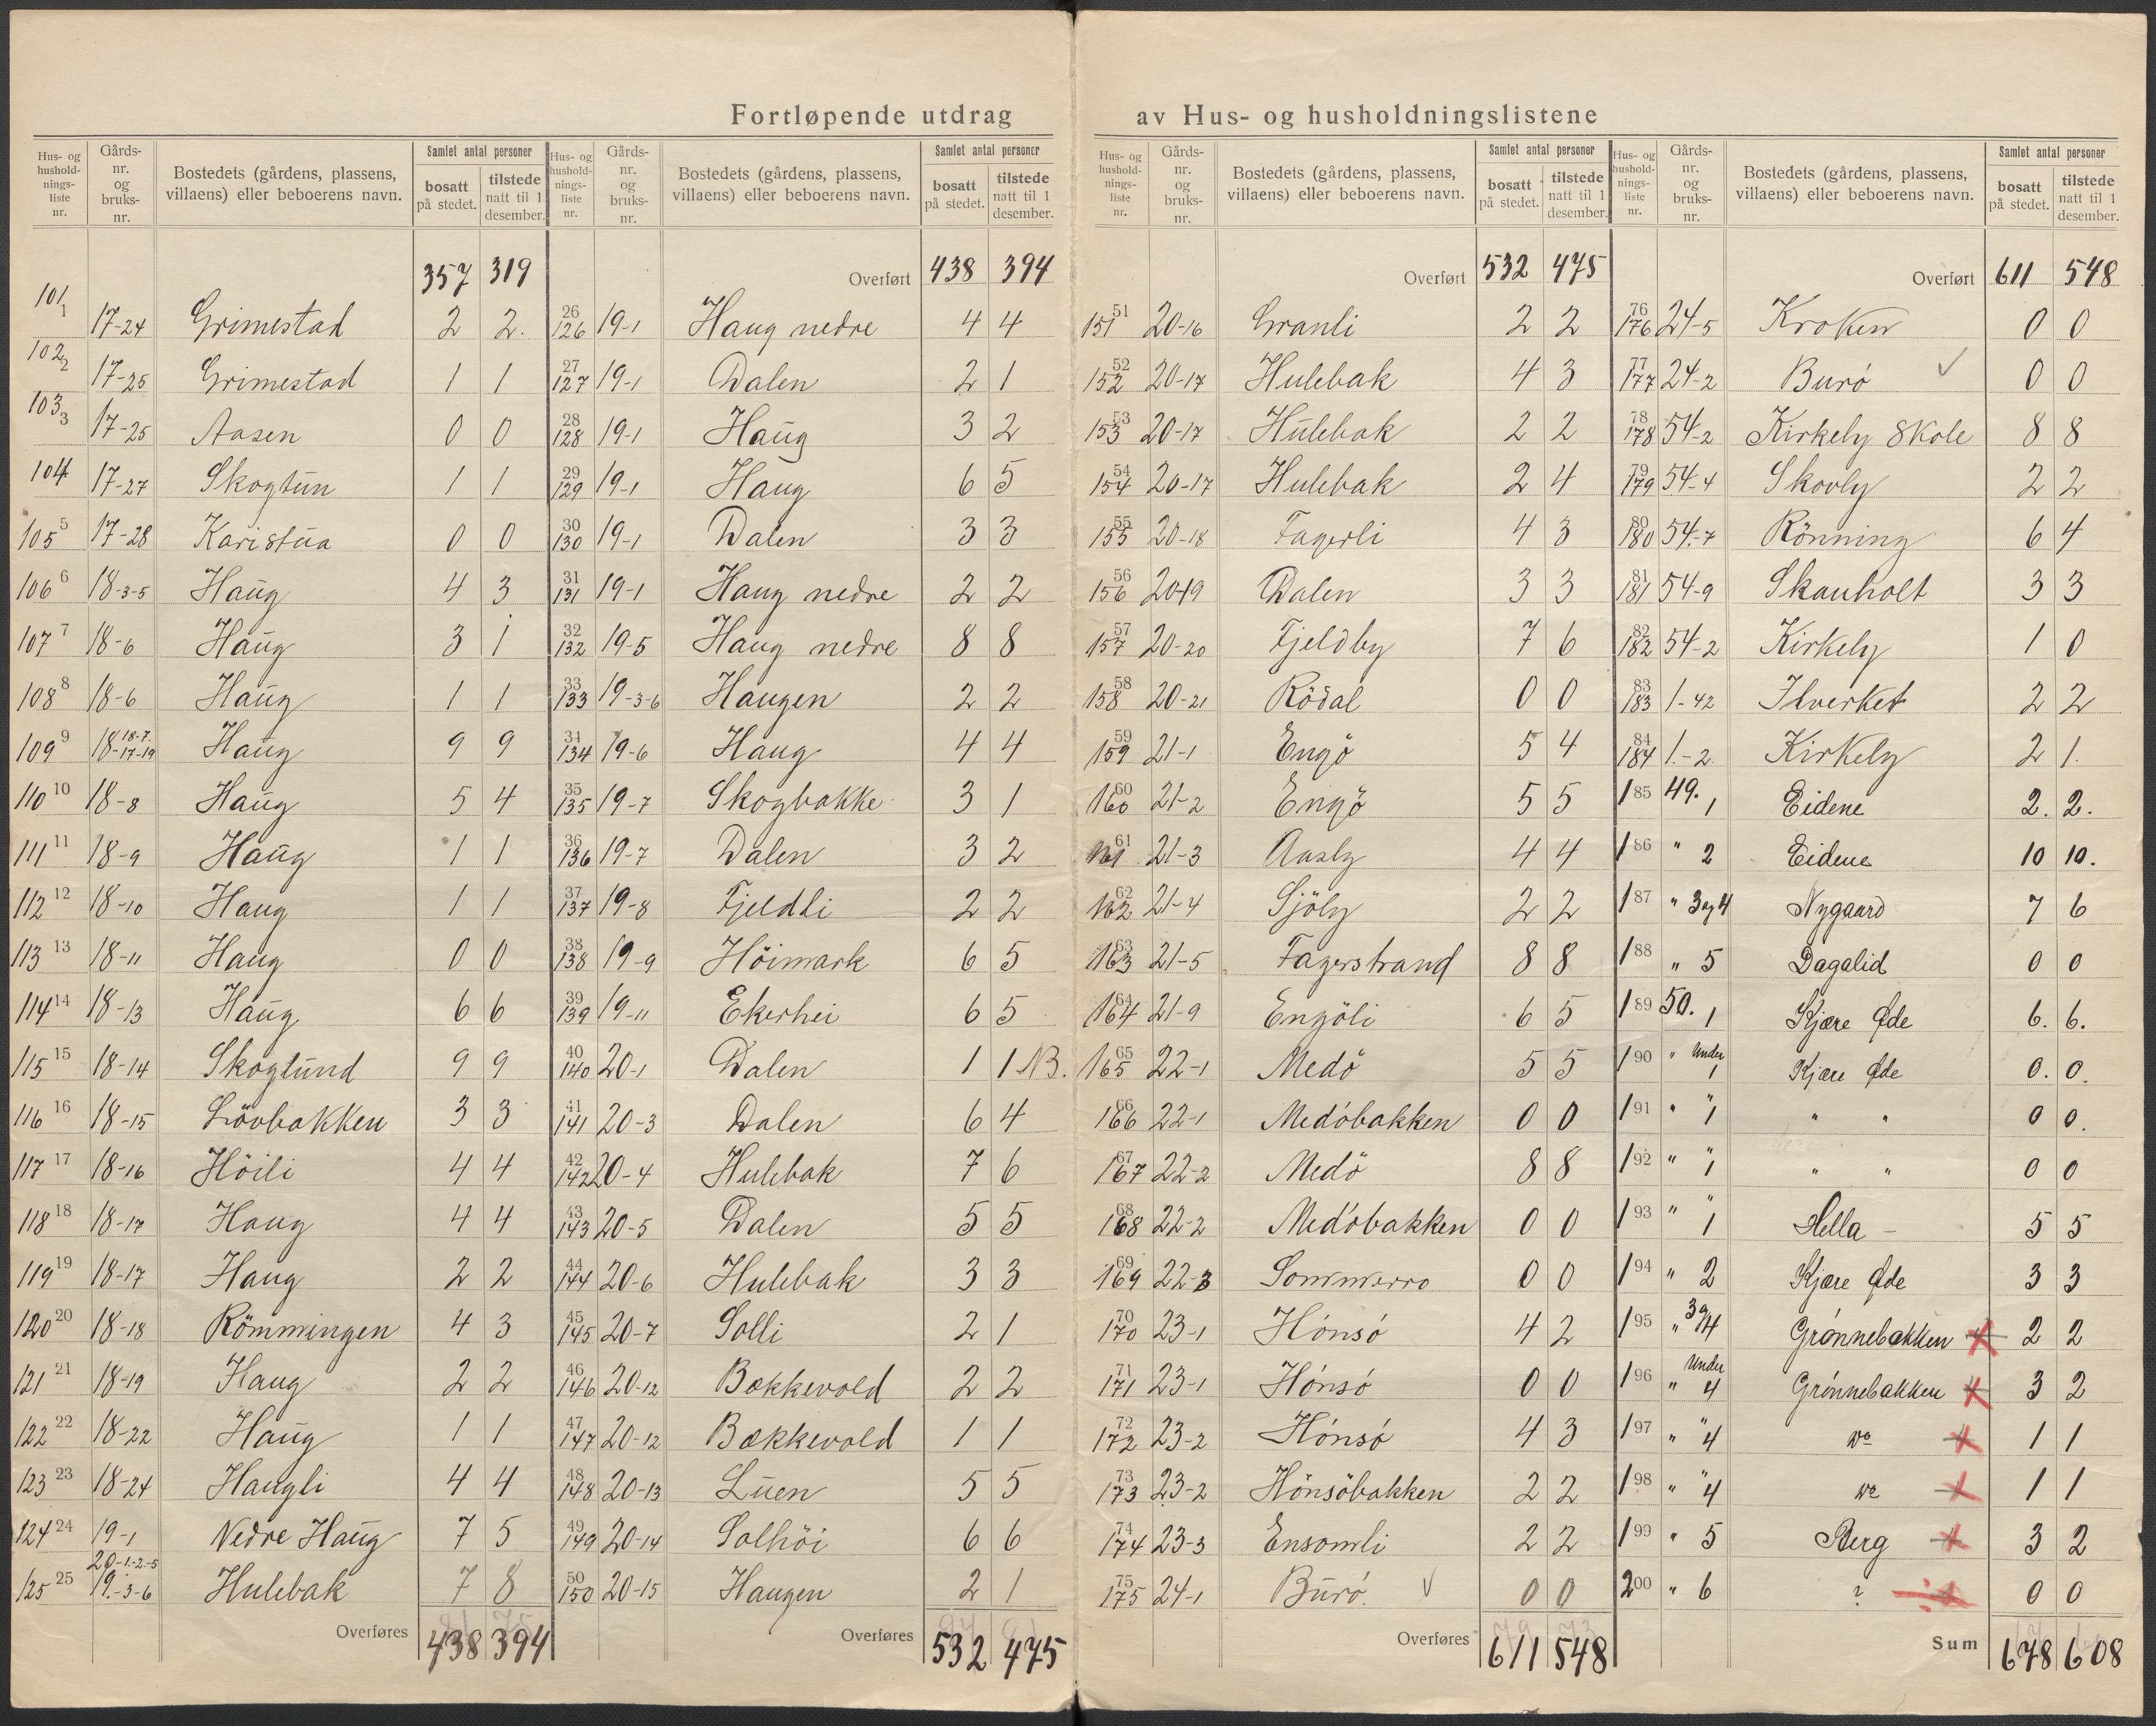 Fortløpende utdrag av Hus- og husholdningslistene
Hus- og husholdningsliste nr. | Gårdsnr. og bruksnr. | Bostedets (gårdens, plassens, villaens) eller beboerens navn. | Samlet antal personer | bosatt på stedet. | tilstede natt til 1 desember.
357 319
101 1 17-24 Grimestad 2 2.
102 2 17-25 Grimestad 1 1
103 3 17-25 Aasen 0 0
104 17-27 Skogtun 1 1
105 5 17-28 Karistua 0 0
106 6 18-3-5 Haug 4 3
107 7 18-6 Haug 3 1
108 8 18-6 Haug 1 1
109 9 18-17-19 18.7. Haug 9 9
110 10 18-8 Haug 5 4
111 11 18-9 Haug 1 1
112 12 18-10 Haug 1 1
113 13 18-11 Haug 0 0
114 14 18-13 Haug 6 6
115 15 18-14 Skoglund 9 9
116 16 18-15 Lövbakken 3 3
117 17 18-16 Höili 4 4
118 18 18-17 Haug 4 4
119 19 18-17 Haug 2 2
120 20 18-18 Römmingen 4 3
121 21 18-19 Haug 2 2
122 22 18-22 Haug 1 1
123 23 18-24 Haugli 4 4
124 24 19-1 Nedre Haug 7 5
125 25 20-1-2-5 19-3-6 Hulebak 7 8
Overføres 438 394
Hus- og husholdningsliste nr. | Gårdsnr. og bruksnr. | Bostedets (gårdens, plassens, villaens) eller beboerens navn. | Samlet antal personer | bosatt på stedet. | tilstede natt til 1 desember.
Overført 438 394
26 126 19-1 Haug nedre 4 4
27 127 19-1 Dalen 2 1
28 128 19-1 Haug 3 2
29 129 19-1 Haug 6 5
30 130 19-1 Dalen 3 3
31 131 19-1 Haug nedre 2 2
32 132 19-5 Haug nedre 8 8
33 133 19-3-6 Haugen 2 2
34 134 19-6 Haug 4 4
35 135 19-7 Skogbakke 3 1
36 136 19-7 Dalen 3 2
37 137 19-8 Fjeldli 2 2
38 138 19-9 Höimark 6 5
39 139 19-11 Ekerhei 6 5
40 140 20-1 Dalen 1 1 NB.
41 141 20-3 Dalen 6 4
42 142 20-4 Hulebak 7 6
43 143 20-5 Dalen 5 5
44 144 20-6 Hulebak 3 3
45 145 20-7 Solli 2 1
46 146 20-12 Bekkevold 2 2
47 147 20-12 Bekkevold 1 1
48 148 20-13 Luen 5 5
49 149 20-14 Solhöi 6 6
50 150 20-15 Haugen 2 1
Overføres 532 475
Hus- og husholdningsliste nr. | Gårdsnr. og bruksnr. | Bostedets (gårdens, plassens, villaens) eller beboerens navn. | Samlet antal personer | bosatt på stedet. | tilstede natt til 1 desember.
Overført 532 475
51 151 20-16 Granli 2 2
52 152 20-17 Hulebak 4 3
53 153 20-17 Hulebak 2 2
54 154 20-17 Hulebak 2 4
55 155 20-18 Fagerli 4 3
56 156 20-19 Dalen 3 3
57 157 20-20 Fjeldby 7 6
58 158 20-21 Rödal 0 0
59 159 21-1 Engö 5 4
60 160 21-2 Engö 5 5
61 161 21-3 Aasly 4 4
62 162 21-4 Sjöly 2 2
63 163 21-5 Fagerstrand 8 8
64 164 21-9 Engöli 6 5
65 165 22-1 Medö 5 5
66 166 22-1 Medöbakken 0 0
67 167 22-2 Medö 8 8
68 168 22-2 Medöbakken 0 0
69 169 22-3 Sommerro 0 0
70 170 23-1 Hönsö 4 2
71 171 23-1 Hönsö 0 0
72 172 23-2 Hönsö 4 3
73 173 23-2 Hönsöbakken 2 2
74 174 23-3 Ensomli 2 2
75 175 24-1 Burö. 0 0
Overføres 611 548
Hus- og husholdningsliste nr. | Gårdsnr. og bruksnr. | Bostedets (gårdens, plassens, villaens) eller beboerens navn. | Samlet antal personer | bosatt på stedet. | tilstede natt til 1 desember.
Overført 611 548
76 176 24-5 Kroken 0 0
77 177 24-2 Burö 0 0
78 178 54-2 Kirkely Skole 8 8
79 179 54-4 Skovly 2 2
80 180 54-7 Rönning 6 4
81 181 54-9 Skauholt 3 3
82 182 54-2 Kirkely 1 0
83 183 1-42 Ilverket 2 2
84 184 1-2 Kirkely 2 1.
185 49. 1 Eidene 2. 2.
186 " 2 Eidene 10 10.
187 " 3 og 4 Nygaard 7 6
188 " 5 Dagalid 0 0
189 50. 1 Kjære Øde 6. 6.
190 " Under 1 Kjære Øde 0. 0.
191 " " 1 " " 0 0.
192 " " 1 " " 0 0
193 " " 1 Hella - 5 5
194 " 2 Kjære Øde 3 3
195 " 3 og 4 Grønnebakken 2 2
196 " Under 4 Grønnebakken 3 2
197 " " 4 do 1 1
198 " " 4 do 1 1
199 " 5 Berg 3 2
200 " 6 ? 0 0
Sum 678 608